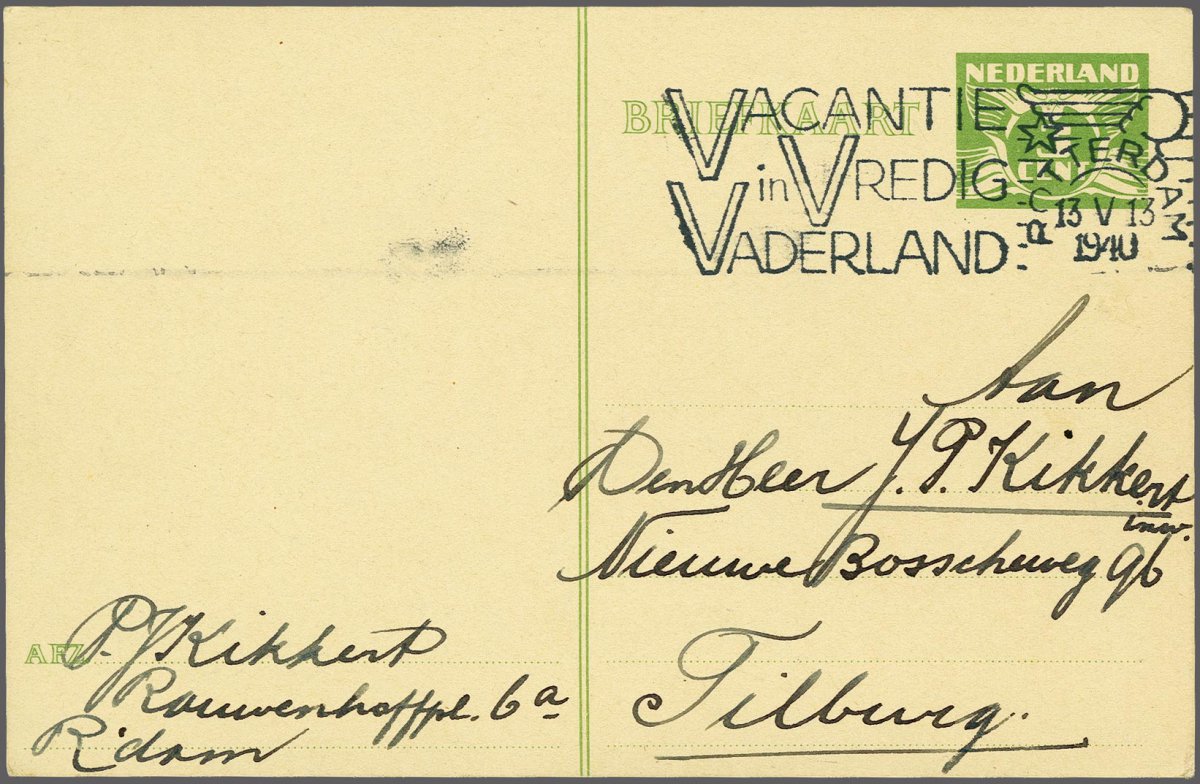 NEDERLAND
BRIEFKAART
CENT
VACANTIE
in VREDIG
VADERLAND
ROTTERDAM
13 V 13
1940
Aan
Den Heer J. P. Kikkert
inw.
Nieuwe Bosscheweg 96
Tilburg.
AFZ.
P. J. Kikkert
Rouwenhoffpl. 6a
R'dam